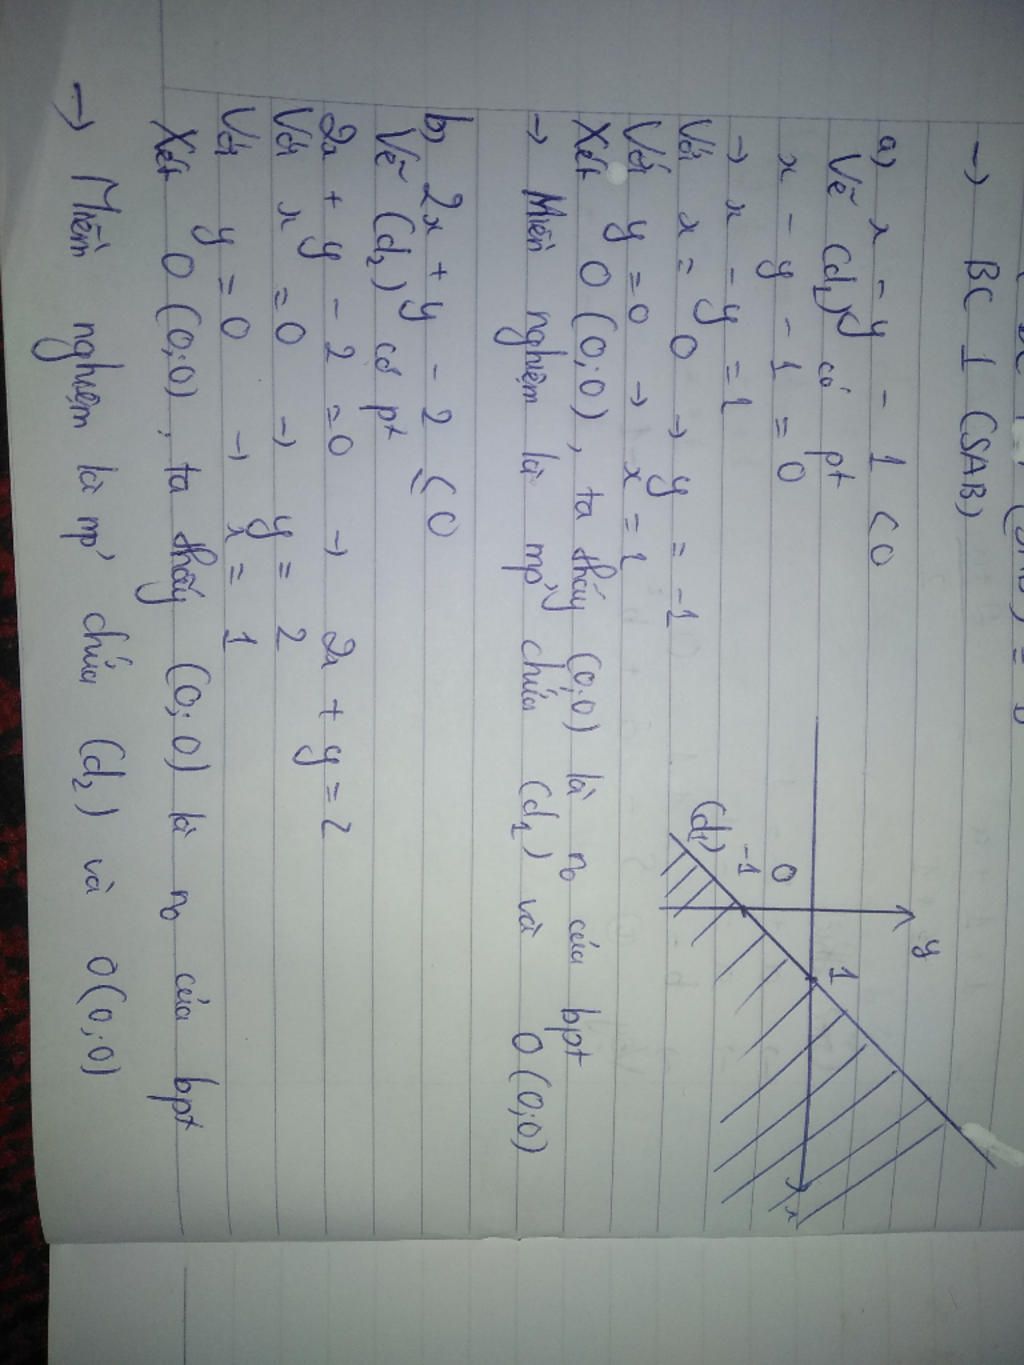 → BC ⊥ (SAB)
a) x - y - 1 < 0
Vẽ (d₁) có pt
x - y - 1 = 0
→ x - y = 1
Với x = 0 → y = -1
Với y = 0 → x = 1
Xét O (0;0), ta thấy (0;0) là n₀ của bpt
→ Miền nghiệm là mp' chứa (d₁) và O(0;0)
y
1
0
-1
(d₁)
x
b) 2x + y - 2 ≤ 0
Vẽ (d₂) có pt
2x + y - 2 = 0 → 2x + y = 2
Với x = 0 → y = 2
Với y = 0 → x = 1
Xét O (0;0), ta thấy (0;0) là n₀ của bpt
→ Miền nghiệm là mp' chứa (d₂) và O(0;0)